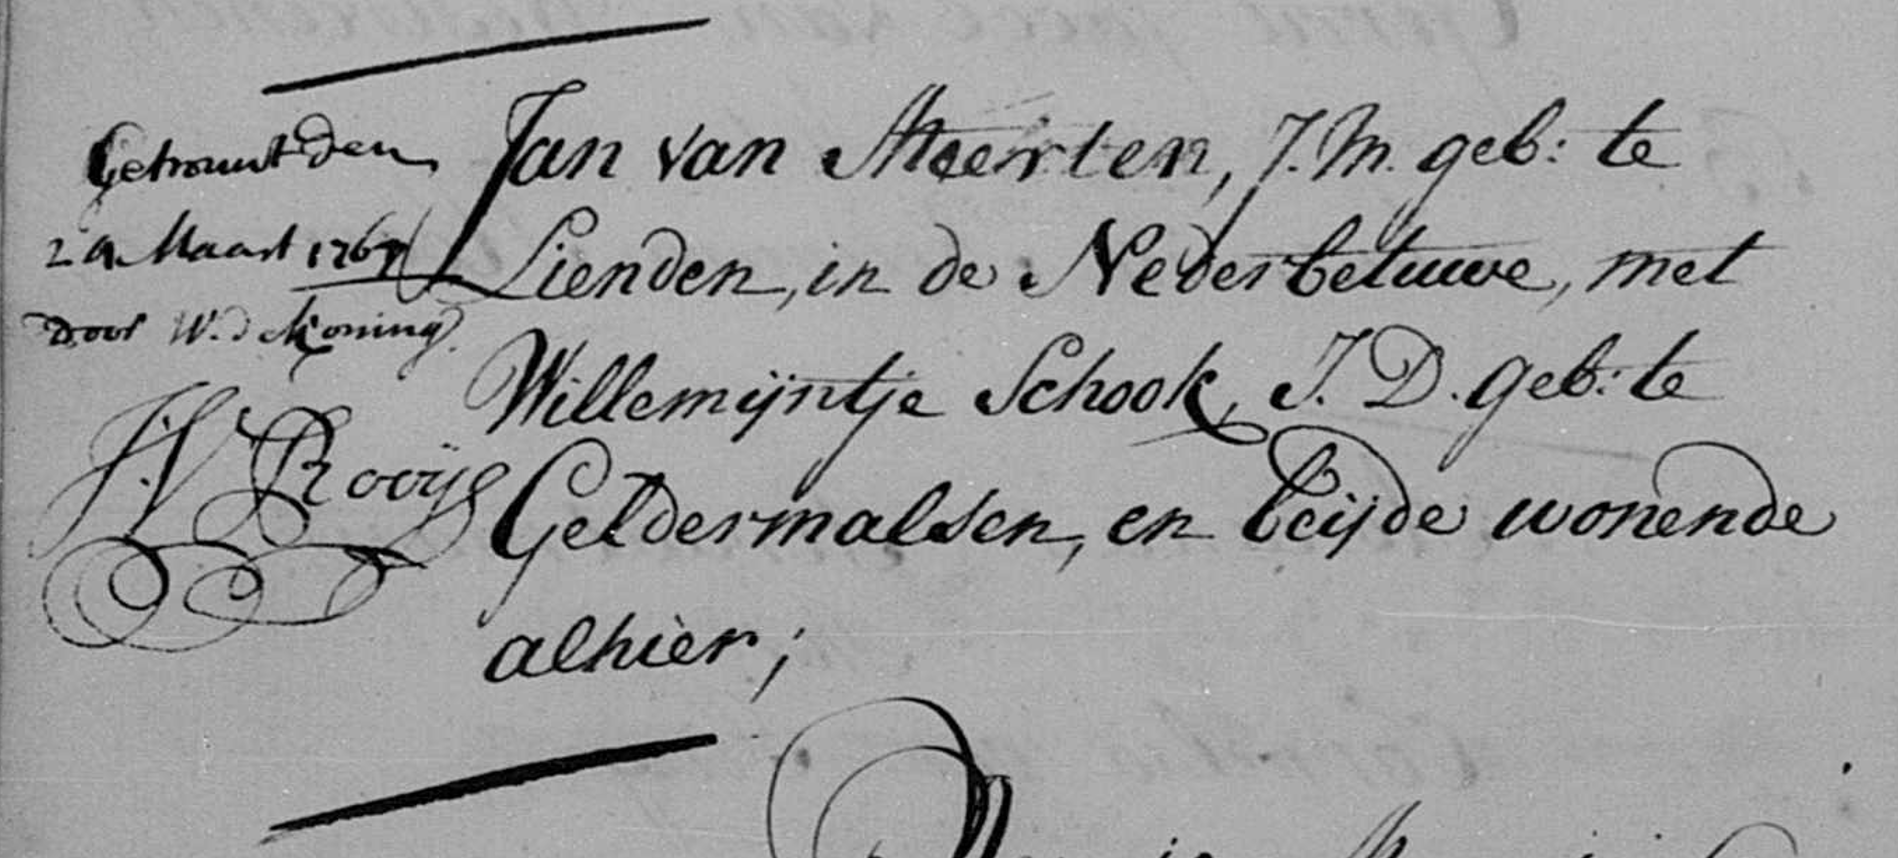 Getrouwt den
29 Maart 1767
door W. d Koning
H V Rooÿe
Jan van Meerten, J. M. geb: te
Lienden, in de Nederbetuwe, met
Willemijntje Schook, J. D. geb: te
Geldermalsen, en beijde wonende
alhier;